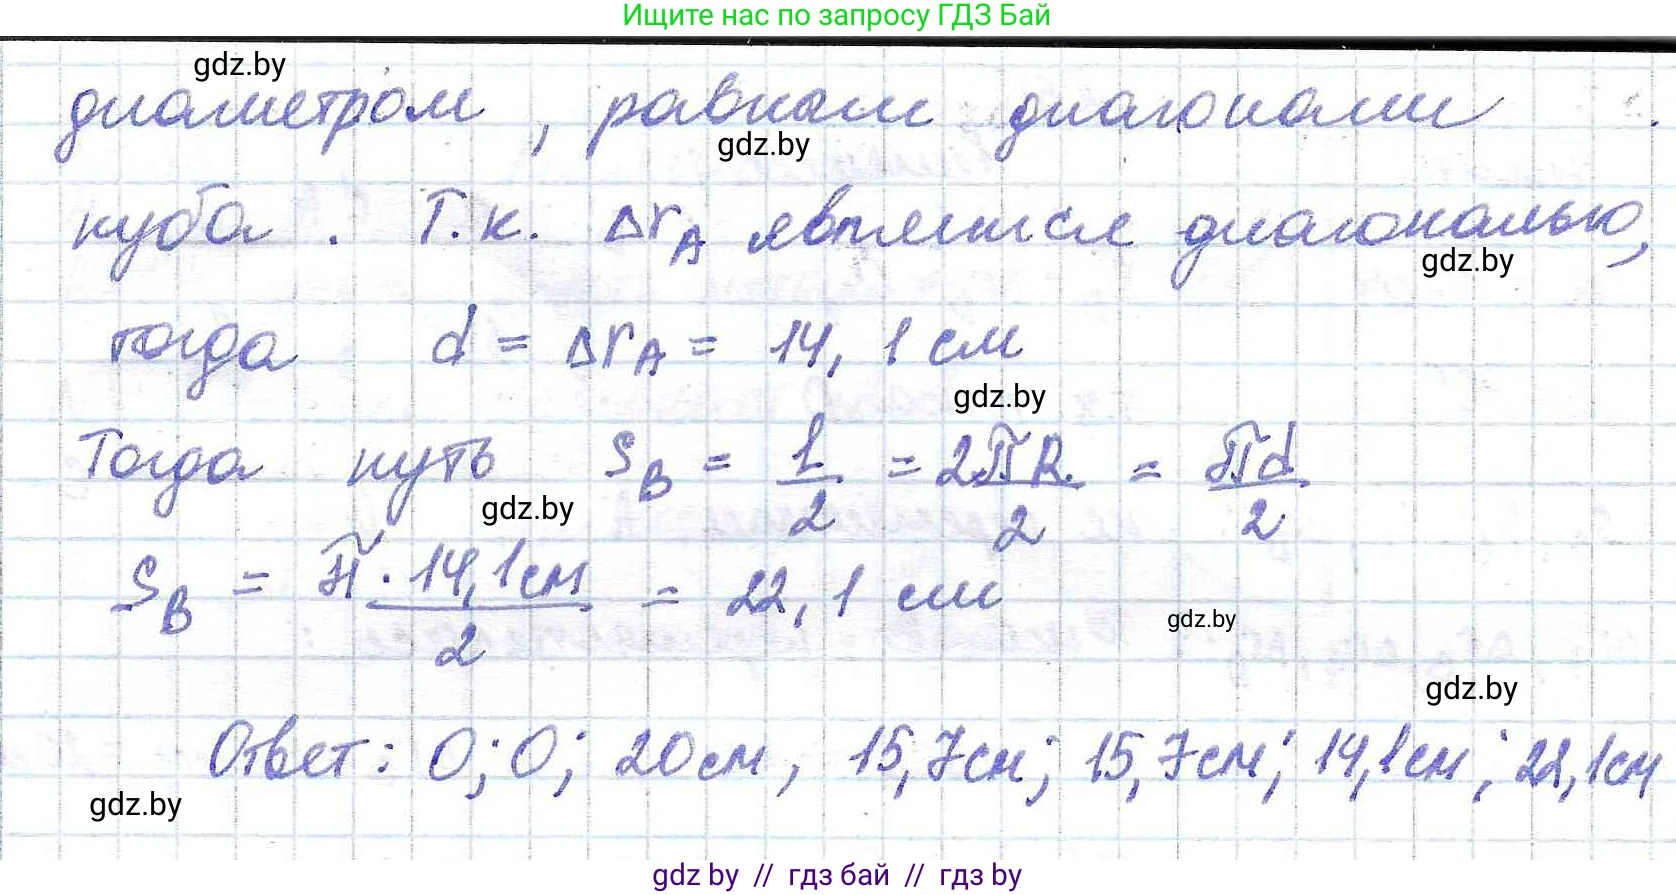 Ищите нас по запросу ГДЗ Бай
gdz.by
диаметром, равным диагонали
gdz.by
куба. Т.к. Δr_A является диагональю,
gdz.by
тогда d = Δr_A = 14,1 см
gdz.by
Тогда путь S_B = l/2 = 2πR/2 = πd/2
gdz.by
S_B = π · 14,1 см/2 = 22,1 см
gdz.by
gdz.by
Ответ: 0; 0; 20 см, 15,7 см; 15,7 см; 14,1 см; 22,1 см
gdz.by
gdz by // гдз бай // гдз by